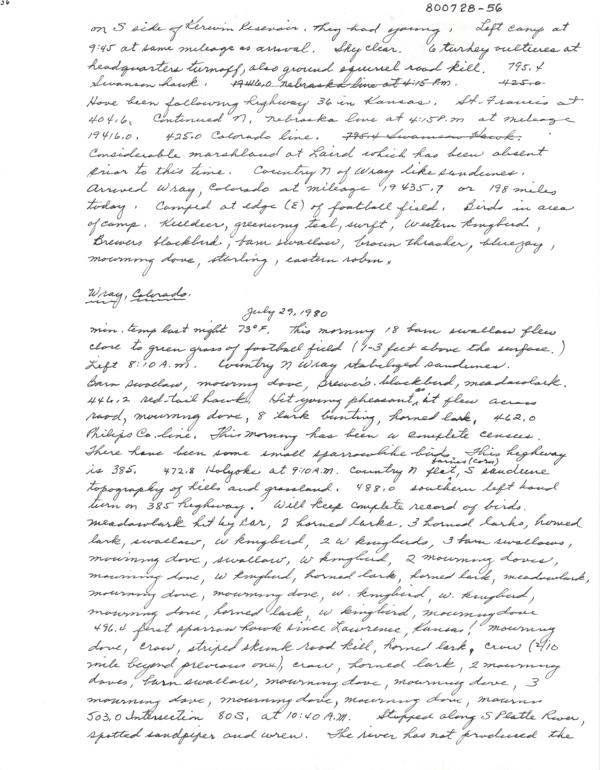 56
800728-56
on S side of Kerwin Resevoir. They had young. Left camp at
9:45 at same mileage as arrival. Sky clear. 6 turkey vultures at
headquarters turnoff, also ground squirrel road kill. 795.4
Swanson hawk. 19416.0 Nebraska line at 4:15 P.M. 425.0
Have been following highway 36 in Kansas. St. Francis at
404.6. Continued N. Nebraska line at 4:15 P.m at mileage
19416.0. 425.0 Colorado line. 795.4 Swanson Hawk.
Considerable marshland at Laird which has been absent
prior to this time. Country N of Wray like sandunes.
Arrived Wray, Colorado at mileage 19435.7 or 198 miles
today. Camped at edge (E) of football field. Birds in area
of camp. Killdeer, greenwing teal, swift, Western Kingbird,
Brewers blackbird, barn swallow, brown thrasher, bluejay,
mourning dove, starling, eastern robin.
Wray, Colorado.
July 29, 1980
min. temp last night 73°F. This morning 18 barn swallow flew
close to green grass of football field (1-3 feet above the surface.)
Left 8:10 A.M. Country N Wray stabilized sandunes.
Barn swallow, mourning dove, Brewer's blackbird, meadowlark.
446.2 red-tail hawk. Hit young pheasant as it flew across
road, mourning dove, 8 lark bunting, horned lark, 462.0
Philips Co. line. This morning has been a complete census.
There have been some small sparrowlike birds. This highway
is 385. 472.8 Holyoke at 9:10 A.M. Country N flat, farms (corn) S sandune
topography of hills and grassland. 488.0 southern left hand
turn on 385 highway. Will keep complete record of birds.
Meadowlark hit by car, 2 horned larks, 3 horned larks, horned
lark, swallow, W kingbird, 2 W kingbirds, 3 barn swallows,
mourning dove, swallow, W kingbird, 2 mourning doves,
mourning dove, W kingbird, horned lark, horned lark, meadowlark,
mourning dove, mourning dove, W. kingbird, W. kingbird,
mourning dove, horned lark, W kingbird, mourning dove
496.4 first sparrow hawk since Lawrence, Kansas! mourning
dove, crow, striped skunk road kill, horned lark, crow (2/10
mile beyond previous one), crow, horned lark, 2 mourning
doves, barn swallow, mourning dove, mourning dove, 3
mourning dove, mourning dove, mourning dove, mourning
503.0 Intersection 80S. at 10:40 A.M. Stopped along S Platte River,
spotted sandpiper and wren. The river has not produced the